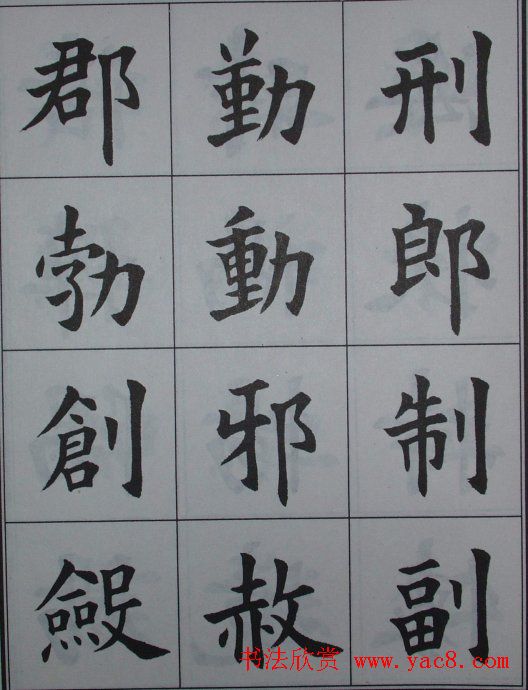 郡 勤 刑
勃 動 郎
創 邪 制
赦 副
书法欣赏 www.yac8.com